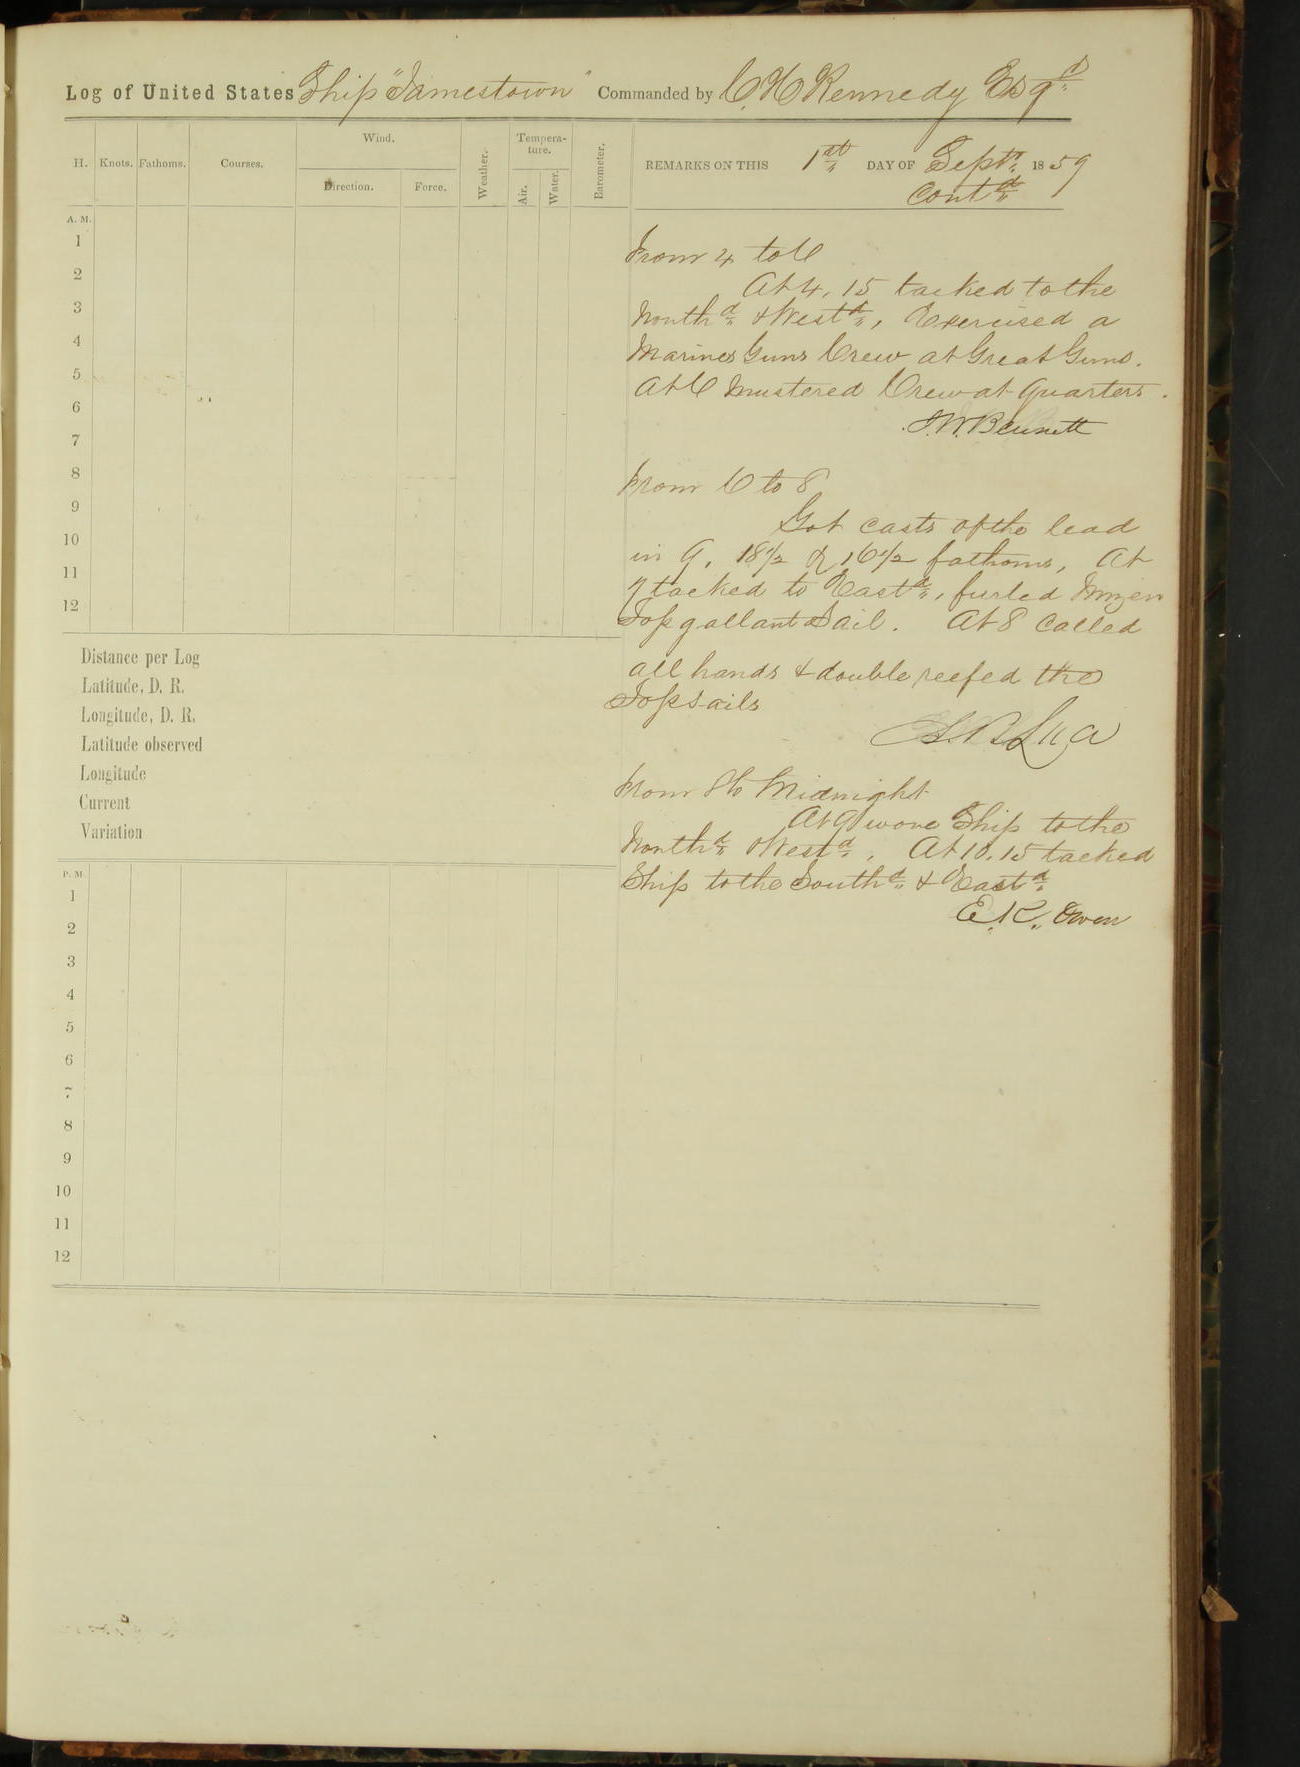 Log of United States Ship "Jamestown" Commanded by C. H. Kennedy Esqr
H. Knots. Fathoms. Courses. Wind. Direction. Force. Weather. Tempera-ture. Air. Water. Barometer.
REMARKS ON THIS 1st DAY OF Septr 1859
Contd
A. M.
1
2
3
4
5
6
7
8
9
10
11
12
Distance per Log
Latitude, D. R.
Longitude, D. R.
Latitude observed
Longitude
Current
Variation
P. M.
1
2
3
4
5
6
7
8
9
10
11
12
From 4 to 6
At 4.15 tacked to the
Northd & Westd, Exercised a
Marines Guns Crew at Great Guns.
At 6 mustered Crew at quarters.
J. W. Bennett
From 6 to 8
Got casts of the lead
in 9, 18 1/2 & 16 1/2 fathoms, At
7 tacked to Eastd, furled Mizen
Topgallant Sail. At 8 Called
all hands & double reefed the
Topsails
From 8 to Midnight
At 9 wore Ship to the
Northd & Westd. At 10.15 tacked
Ship to the Southd & Eastd
E. K. Owen